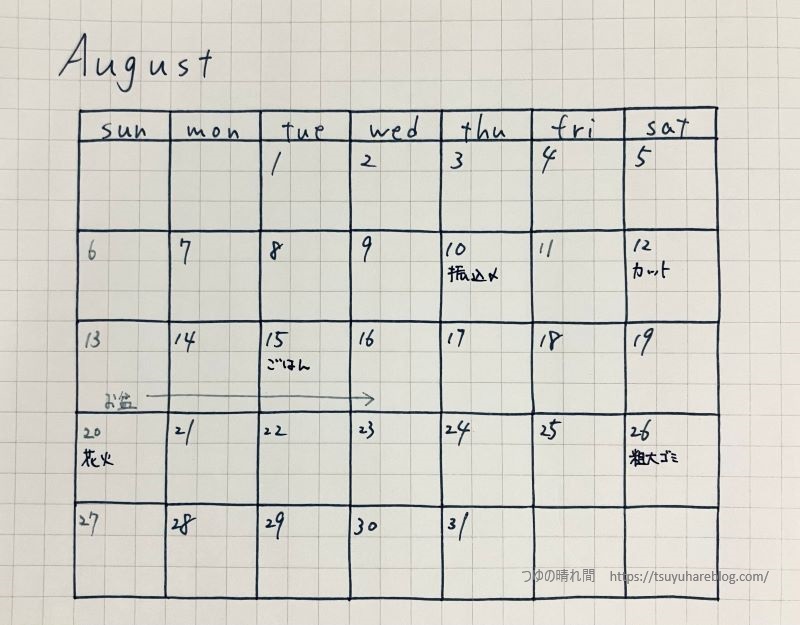 August
sun mon tue wed thu fri sat
1 2 3 4 5
6 7 8 9 10 11 12
振込〆 カット
13 14 15 16 17 18 19
ごはん
お盆
20 21 22 23 24 25 26
花火 粗大ゴミ
27 28 29 30 31
つゆの晴れ間 https://tsuyuhareblog.com/